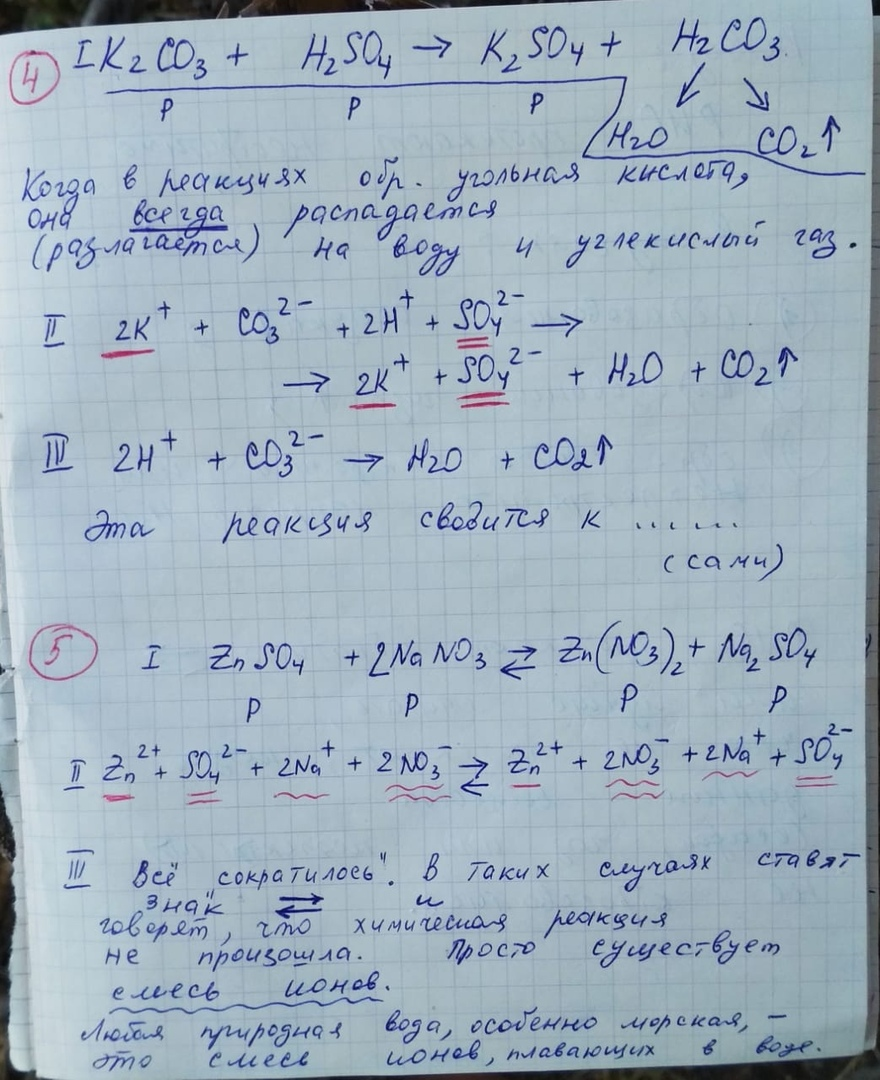 ④ I K₂CO₃ + H₂SO₄ → K₂SO₄ + H₂CO₃
р р р
↙ ↘
H₂O CO₂↑
Когда в реакциях обр. угольная кислота,
она всегда распадается
(разлагается) на воду и углекислый газ.
II 2K⁺ + CO₃²⁻ + 2H⁺ + SO₄²⁻ →
→ 2K⁺ + SO₄²⁻ + H₂O + CO₂↑
III 2H⁺ + CO₃²⁻ → H₂O + CO₂↑
Эта реакция сводится к ......
(сами)
⑤ I ZnSO₄ + 2NaNO₃ ⇄ Zn(NO₃)₂ + Na₂SO₄
р р р р
II Zn²⁺ + SO₄²⁻ + 2Na⁺ + 2NO₃⁻ ⇄ Zn²⁺ + 2NO₃⁻ + 2Na⁺ + SO₄²⁻
III Всё "сократилось". В таких случаях ставят
знак ⇄ и
говорят, что химическая реакция
не произошла. Просто существует
смесь ионов.
Любая природная вода, особенно морская, –
это смесь ионов, плавающих в воде.